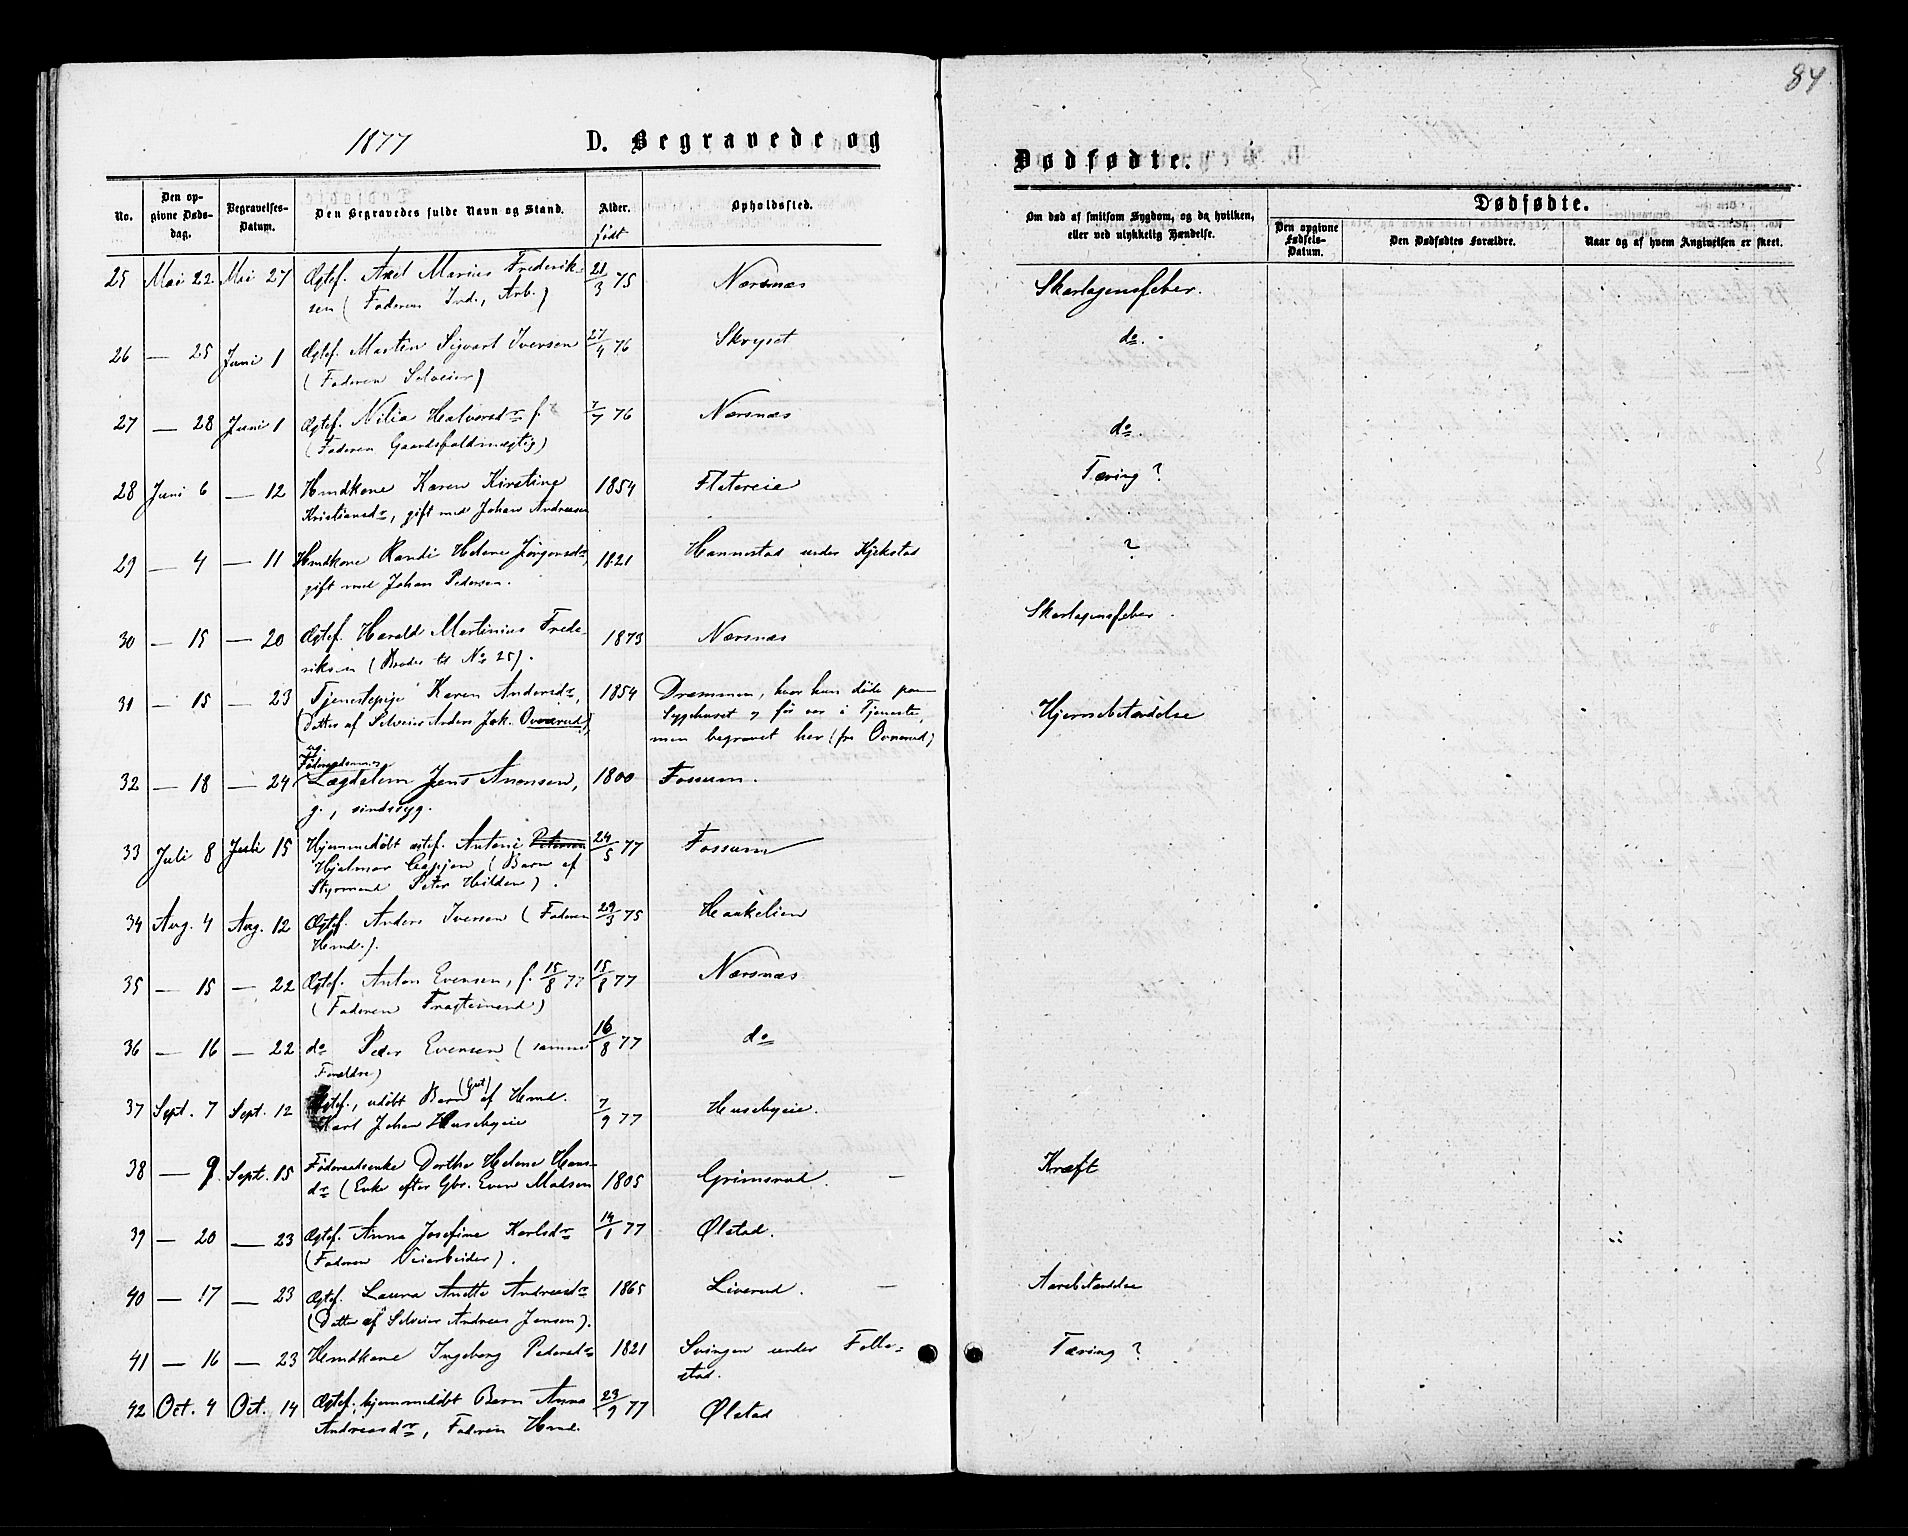 84
1877 D. Begravede og
Dødfødte.
No.
Den opgivne Dødsdag.
Begravelses-Datum.
Den Begravedes fulde Navn og Stand.
Alder.
født
Opholdssted.
Om død af smitsom Sygdom, og da hvilken,
eller ved ulykkelig Hændelse.
Dødfødte.
Den opgivne Fødsels-Datum.
Den Dødfødtes Forældre.
Naar og af hvem Angivelsen er skeet.
25 Mai 22 Mai 27 Ægtef. Axel Marius Frederik- 21/3 75 Nærsnæs Skarlagensfeber.
sen (Faderen Ind., Arb.)
26 — 25 Juni 1 Ægtef. Martin Sigvart Iversen 27/4 76 Skryset do.
(Faderen Selveier)
27 — 28 Juni 1 Ægtef. Nilia Halvorsdr f. 7/7 76 Nærsnæs do.
(Faderen Gaardsfuldmægtig)
28 Juni 6 — 12 Hmdkone Karen Kirstine 1854 Flatereie Tæring?
Kristiansdr, gift med Johan Andreasen
29 — 4 — 11 Hmdkone Randi Helene Jørgensdr, 1821 Hannestad under Kjekstad ?
gift med Johan Pedersen.
30 — 15 — 20 Ægtef. Harald Martinius Frede- 1873 Nærsnæs Skarlagensfeber.
riksen (Broder til No 25).
31 — 15 — 23 Tjenestepige Karen Andersdr, 1854 Drammen, hvor hun døde paa Hjernebetændelse
(Datter af Selveier Anders Jak. Ovnerud), Sygehuset og før var i Tjeneste,
men begravet her (fra Ovnerud)
ug.
Føderaadsmand
32 — 18 — 24 Lægdslem Jens Aronsen, 1800 Fossum.
g., sindssyg.
33 Juli 8 Juli 15 Hjemmedøbt ægtef. Antoni Petersen 24/5 77 Fossum
Hjalmar (Barn af
Styrmand Peter Hilden).
34 Aug. 4 Aug. 12 Ægtef. Anders Iversen (Faderen 29/3 75 Haakelien
Hmd.).
35 — 15 — 22 Ægtef. Anton Evensen, f. 15/8 77 15/8 77 Nærsnæs
(Faderen Fragtemand)
36 — 16 — 22 do Peder Evensen (samme 16/8 77 do
Forældre)
37 Sept. 7 Sept. 12 Ægtef., udøbt Barn (Gut) af Hmd. 7/9 77 Husebyeie.
Karl Johan Husebyeie
38 — 9 Sept. 15 Føderaadsenke Dorthe Helene Hans- 1805 Grimsrud. — Kræft
dr (Enke efter Gbr. Even Madsen
39 — 20 — 23 Ægtef. Anna Josefine Karlsdr 14/1 77 Ølstad.
(Faderen Veiarbeider).
40 — 17 — 23 Ægtef. Laura Anette Andreasdr 1865 Liverud. — Aarebetændelse
(Datter af Selveier Andreas Jensen).
41 — 16 — 23 Hmdkone Ingeborg Pedersdr 1821 Svingen under Folle- Tæring?
stad.
42 Oct. 4 Oct. 14 Ægtef. hjemmedøbt Barn Anna 23/9 77 Ølstad
Andreasdr, Faderen Hmd.